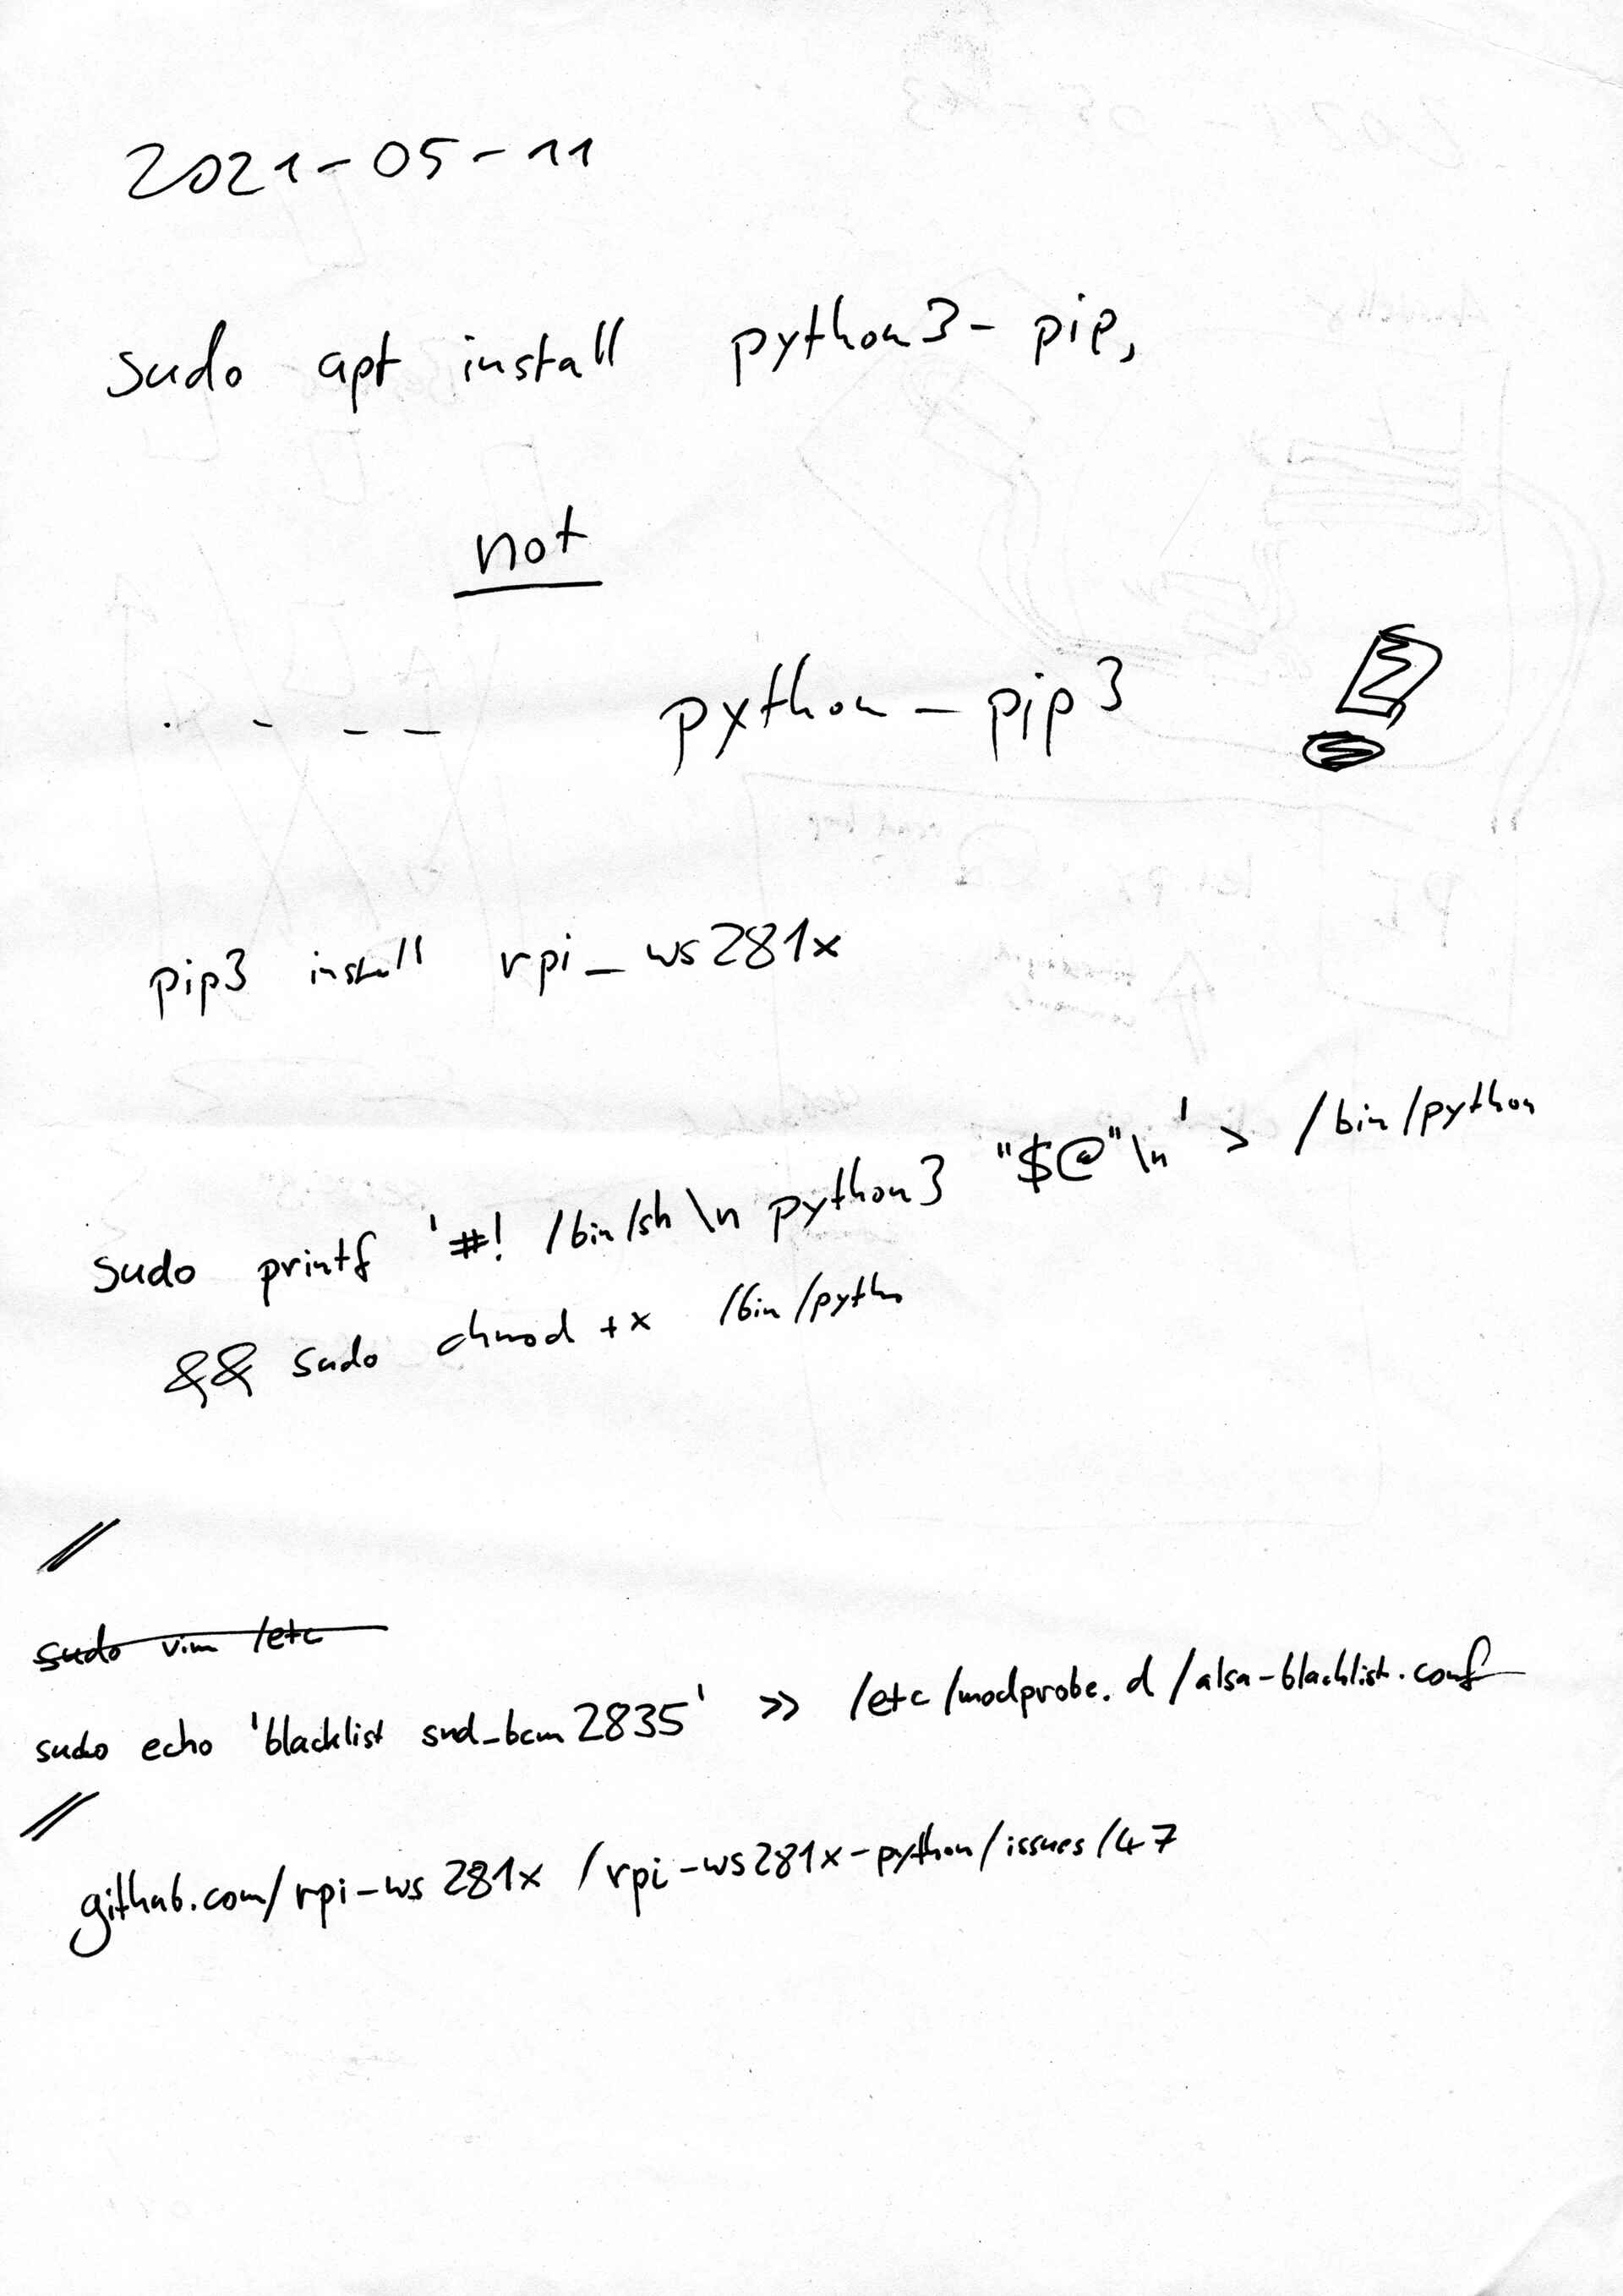 2021-05-11
sudo apt install python3-pip,
not
. - _ _ python-pip3 !
pip3 install rpi_ws281x
sudo printf '#! /bin/sh \n python3 "$@"\n' > /bin/python
&& sudo chmod +x /bin/pytho
//
sudo vim /etc
sudo echo 'blacklist snd_bcm2835' >> /etc/modprobe.d/alsa-blacklist.conf
//
github.com/rpi-ws281x/rpi-ws281x-python/issues/47